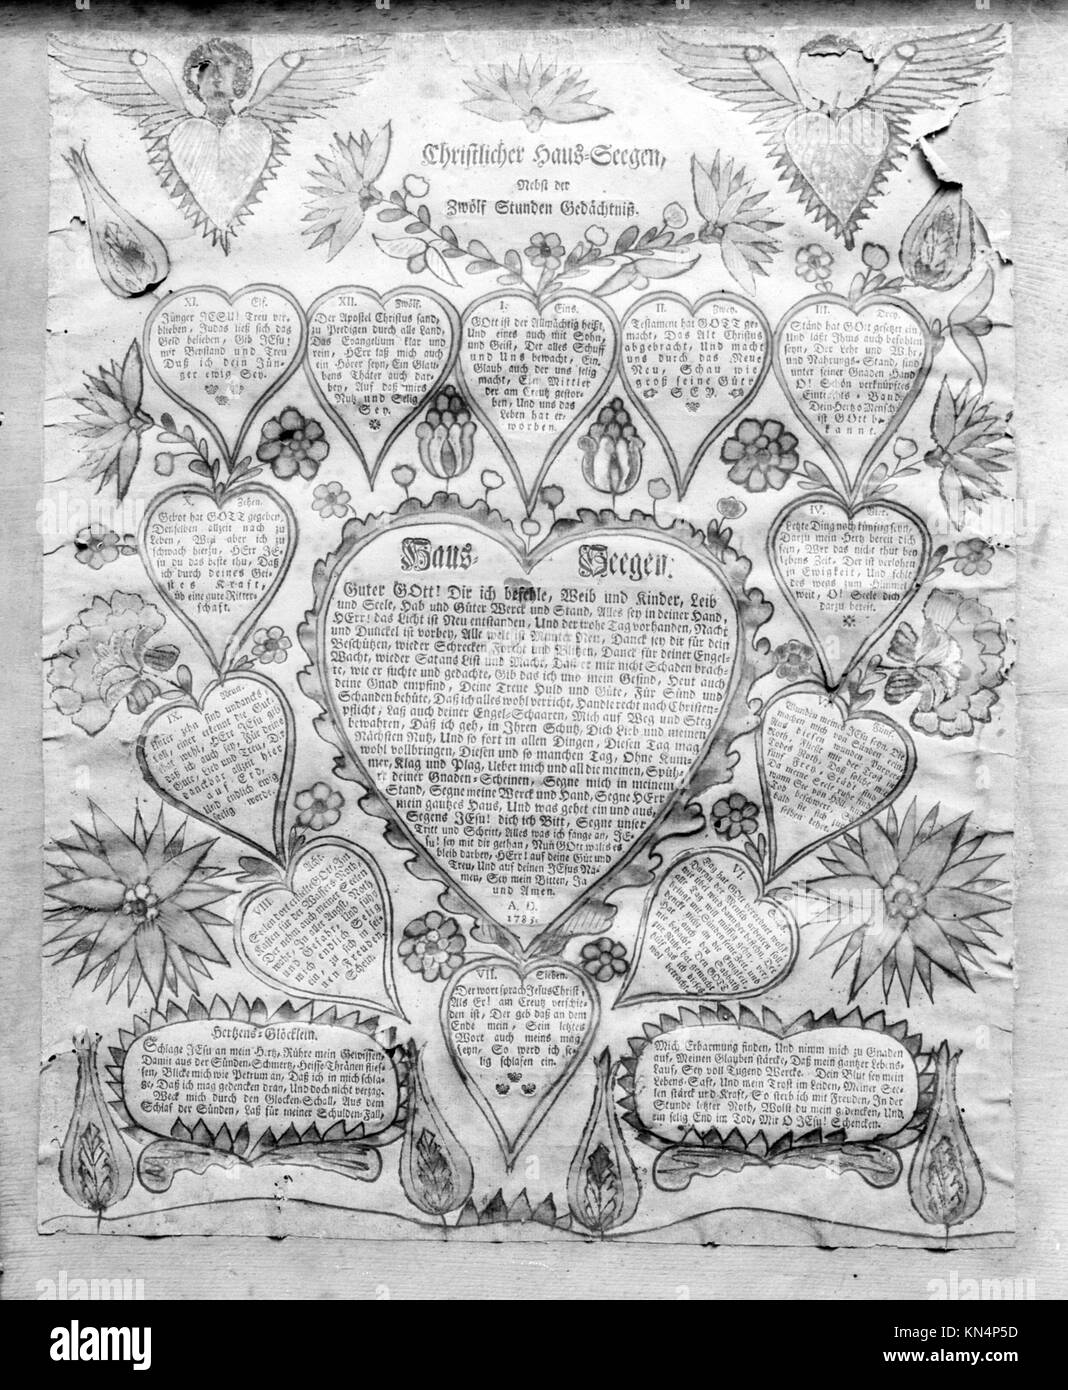 Christlicher Haus-Seegen,
Nebst der
Zwölf Stunden Gedächtniß.
XI. Elf.
Jünger JESU! Treu ver-
blieben, Judas ließ sich das
Geld belieben, Gib JEsu!
mir Beystand und Treu
Daß ich dein Jün-
ger ewig Sey.
XII. Zwölf.
Der Apostel Christus sand,
zu Perdigen durch alle Land,
Das Evangelium klar und
rein, HErr laß mich auch
ein Hörer seyn, Ein Glau-
bens Thäter auch dar-
bey, Auf daß mirs
Nutz und Selig
Sey.
I. Eins.
GOtt ist der Allmächtig heißt,
Und eines auch mit Sohn,
und Geist, Der alles Schuff
und Uns bewacht, Ein
Glaub auch der uns selig
macht, Ein Mittler
der am Creutz gestor-
ben, Und uns das
Leben hat er-
worben.
II. Zwey.
Testament hat GOTT ge-
macht, Das Alt Christus
abgebracht, Und macht
uns durch das Neue
Neu, Schau wie
groß seine Güte
SEY.
III. Drey.
Ständ hat GOtt gesetzet ein,
Und läßt Ihms auch befohlen
seyn, Der Lehr und Wehr,
und Nahrungs-Stand, sind
unter seiner Gnaden-Hand
O! Schön verknüpftes
Eintrachts-Band,
Dein Hertz o Mensch
ist GOtt be-
kannt.
X. Zehen.
Gebot hat GOTT gegeben,
Denselben allzeit nach zu
Leben, Weil aber ich zu
schwach hierzu, HErr JE-
su du das beste thu, Daß
ich durch deines Gei-
stes Kraft,
üb eine gute Ritter-
schaft.
IV. Vier.
Letzte Ding noch künftig seyn,
Darzu mein Hertz bereit dich
sein, Wer das nicht thut bey
lebens Zeit, Der ist verlohrn
in Ewigkeit, Und fehlt
des wegs zum Himmel
weit, O! Seele dich
darzu bereit.
Haus-Seegen.
Guter GOtt! Dir ich befehle, Weib und Kinder, Leib
und Seele, Hab und Güter Werck und Stand, Alles sey in deiner Hand,
HErr! das Licht ist Neu entstanden, Und der frohe Tag vorhanden, Nacht
und Dunckel ist vorbey, Alle welt ist Munter Neu, Danck sey dir für dein
Beschützen, wieder Schrecken Forcht und Blitzen, Danck für deiner Engel-
Wacht, wieder Satans List und Macht, Daß er mir nicht Schaden brach-
te, wie er suchte und gedachte, Gib das ich und mein Gesind, Heut auch
deine Gnad empfind, Deine Treue Huld und Güte, Für Sünd und
Schanden behüte, Daß ich alles wohl verricht, Handle recht nach Christen-
pflicht, Laß auch deiner Engel-Schaaren, Mich auf Weg und Steg
bewahren, Daß ich geh, in Ihren Schutz, Dich Lieb und meinen
Nächsten Nutz, Und so fort in allen Dingen, Diesen Tag mag
wohl vollbringen, Diesen und so manchen Tag, Ohne Kum-
mer, Klag und Plag, Ueber mich und all die meinen,
deiner Gnaden-Scheinen, Segne mich in meinem
Stand, Segne meine Werck und Hand, Segne HErr
mein gantzes Haus, Und was gehet ein und aus,
Segens JEsu! dich ich Bitt, Segne unser
Tritt und Schritt, Alles was ich fange an, JE-
su! sey mit die gethan, Nun GOtt walts es
bleib darbey, HErr! auf deine Güt und
Treu, Und auf deinen JEsus Na-
men, Sey mein Bitten, Ja
und Amen.
1785.
IX. Neun.
VIII. Acht.
V. Fünf.
VI. Sechs.
VII. Sieben.
Der wort sprach Jesus Christ,
Als Er! am Creutz verschie-
den ist, Der geb daß an dem
Ende mein, Sein letztes
Wort auch meins mag
seyn, So werd ich se-
lig schlafen ein.
Hertzens-Glöcklein.
Schlage JEsu an mein Hertz, Rühre mein Gewissen,
Damit aus der Sünden-Schmertz, Heisse Thränen flies-
sen, Blicke mich wie Petrum an, Daß ich in mich schla-
ge, Daß ich mag gedencken dran, Und doch nicht verzag.
Weck mich durch den Glocken-Schall, Aus dem
Schlaf der Sünden, Laß für meiner Schulden-Fall,
Mich Erbarmung finden, Und nimm mich zu Gnaden
auf, Meinen Glauben stärcke, Daß mein gantzer Lebens-
Lauf, Sey voll Tugend Wercke. Dein Blut sey mein
Lebens-Saft, Und mein Trost im Leiden, Meiner See-
len stärck und Kraft, So sterb ich mit Freuden, In der
Stunde letzter Noth, Wolst du mein gedencken, Und
ein selig End im Tod, Mir O JEsu! Schencken.
alamy
Image ID: KN4P5D
www.alamy.com